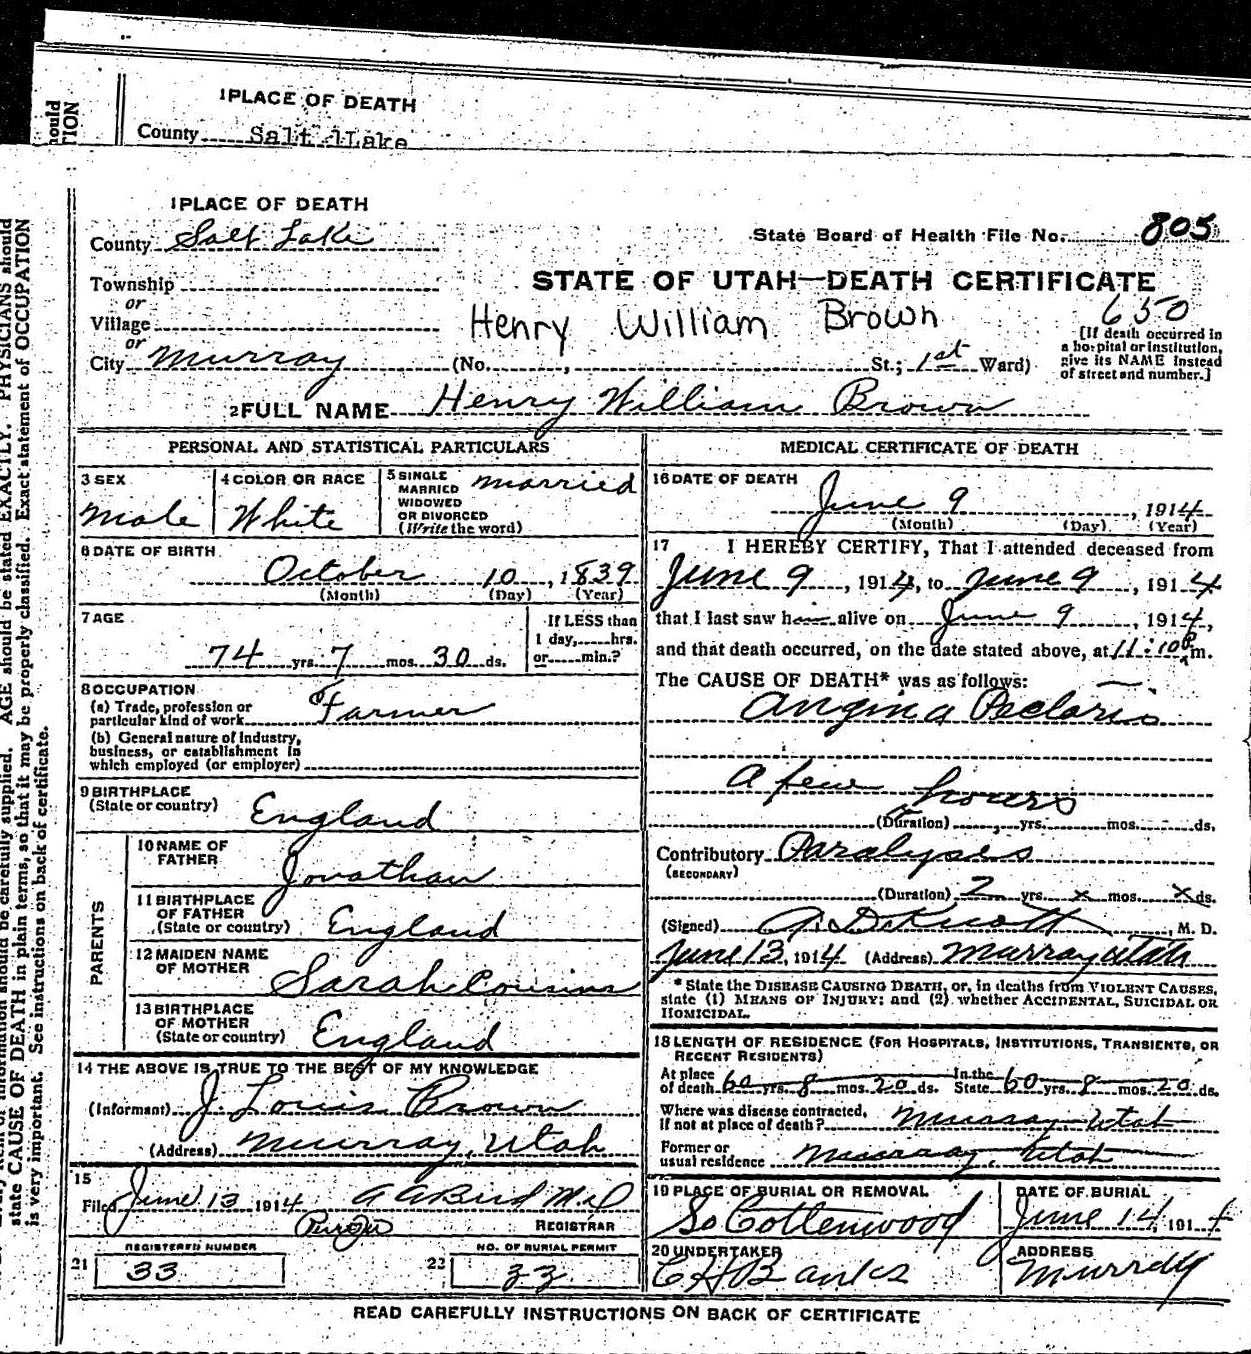 1PLACE OF DEATH
County Salt Lake
ould
TION
1PLACE OF DEATH
County Salt Lake
State Board of Health File No. 805
Township
or
STATE OF UTAH—DEATH CERTIFICATE
Village
Henry William Brown
650
or
City Murray (No. , St.; 1st Ward)
[If death occurred in a hospital or institution, give its NAME instead of street and number.]
2FULL NAME Henry William Brown
PERSONAL AND STATISTICAL PARTICULARS
3 SEX
Male
4 COLOR OR RACE
White
5 SINGLE
MARRIED
WIDOWED
OR DIVORCED
(Write the word)
Married
6 DATE OF BIRTH
October 10, 1839
(Month) (Day) (Year)
7 AGE
74 yrs. 7 mos. 30 ds.
If LESS than
1 day, hrs.
or min.?
8 OCCUPATION
(a) Trade, profession or
particular kind of work Farmer
(b) General nature of industry,
business, or establishment in
which employed (or employer)
9 BIRTHPLACE
(State or country) England
PARENTS
10 NAME OF
FATHER
Jonathan
11 BIRTHPLACE
OF FATHER
(State or country) England
12 MAIDEN NAME
OF MOTHER
Sarah Cousins
13 BIRTHPLACE
OF MOTHER
(State or country) England
14 THE ABOVE IS TRUE TO THE BEST OF MY KNOWLEDGE
(Informant) J. Louis Brown
(Address) Murray, Utah
15
Filed June 13 1914 A A Bird M.d
REGISTRAR
REGISTERED NUMBER
21 33
NO. OF BURIAL PERMIT
22 33
MEDICAL CERTIFICATE OF DEATH
16 DATE OF DEATH
June 9, 1914
(Month) (Day) (Year)
17 I HEREBY CERTIFY, That I attended deceased from
June 9, 1914, to June 9, 1914
that I last saw h alive on June 9, 1914,
and that death occurred, on the date stated above, at 11:10 P m.
The CAUSE OF DEATH* was as follows:
Angina Pectoris
A few hours
(Duration) yrs. mos. ds.
Contributory Paralysis
(SECONDARY)
(Duration) 2 yrs. x mos. x ds.
(Signed) , M. D.
June 13, 1914 (Address) Murray Utah
* State the DISEASE CAUSING DEATH, or, in deaths from VIOLENT CAUSES,
state (1) MEANS OF INJURY; and (2) whether ACCIDENTAL, SUICIDAL OR
HOMICIDAL.
18 LENGTH OF RESIDENCE (FOR HOSPITALS, INSTITUTIONS, TRANSIENTS, OR
RECENT RESIDENTS)
At place of death 60 yrs. 8 mos. 20 ds. In the State 60 yrs. 8 mos. 20 ds.
Where was disease contracted,
if not at place of death? Murray Utah
Former or
usual residence Murray, Utah
19 PLACE OF BURIAL OR REMOVAL
So Cottenwood
DATE OF BURIAL
June 14, 1914
20 UNDERTAKER
C H Banks
ADDRESS
Murray
READ CAREFULLY INSTRUCTIONS ON BACK OF CERTIFICATE
information should be carefully supplied. AGE should be stated EXACTLY. PHYSICIANS should
state CAUSE OF DEATH in plain terms, so that it may be properly classified. Exact statement of OCCUPATION
is very important. See instructions on back of certificate.